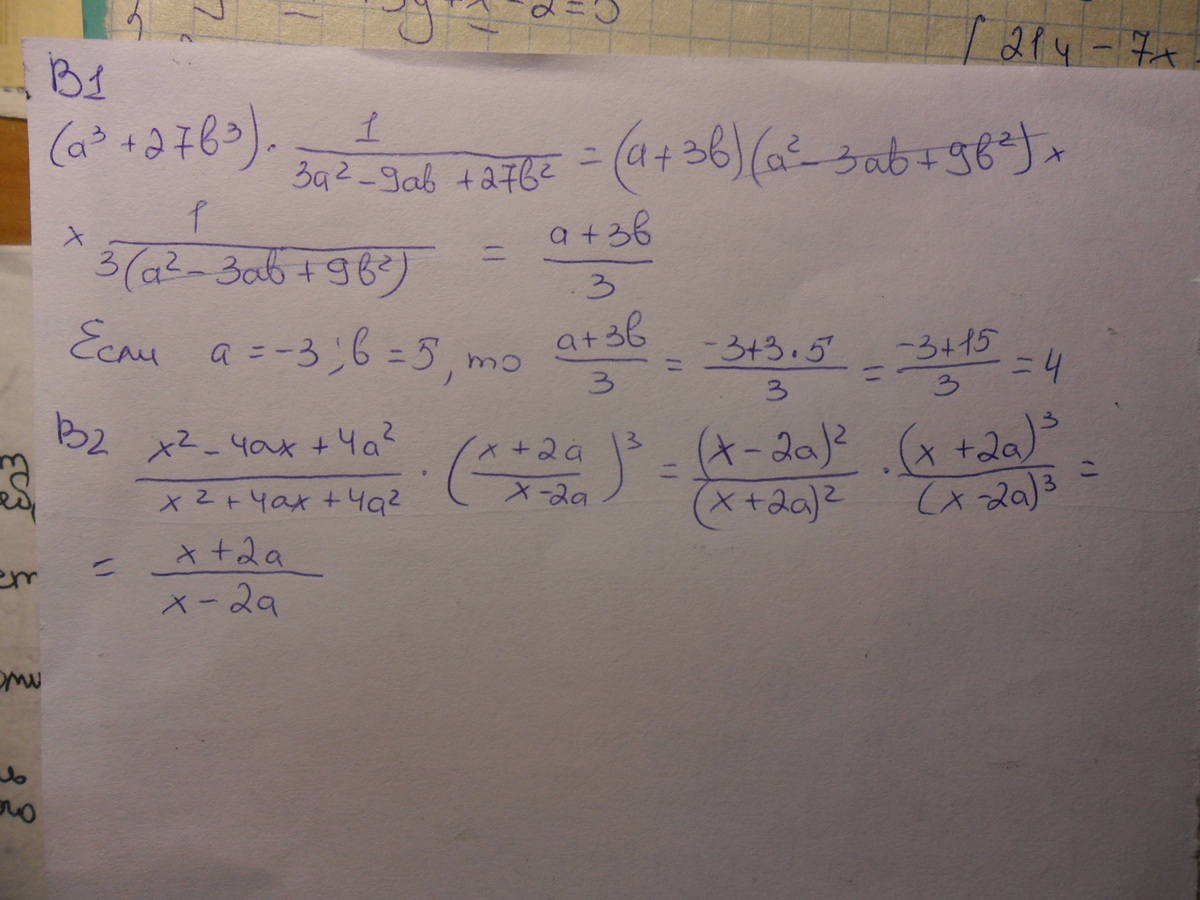 21y - 7x
B1
(a³ + 27b³) · 1/(3a² - 9ab + 27b²) = (a + 3b)(a² - 3ab + 9b²) ×
× 1/(3(a² - 3ab + 9b²)) = (a + 3b)/3
Если a = -3; b = 5, то (a + 3b)/3 = (-3 + 3 · 5)/3 = (-3 + 15)/3 = 4
B2 (x² - 4ax + 4a²)/(x² + 4ax + 4a²) · ((x + 2a)/(x - 2a))³ = (x - 2a)²/(x + 2a)² · (x + 2a)³/(x - 2a)³ =
= (x + 2a)/(x - 2a)